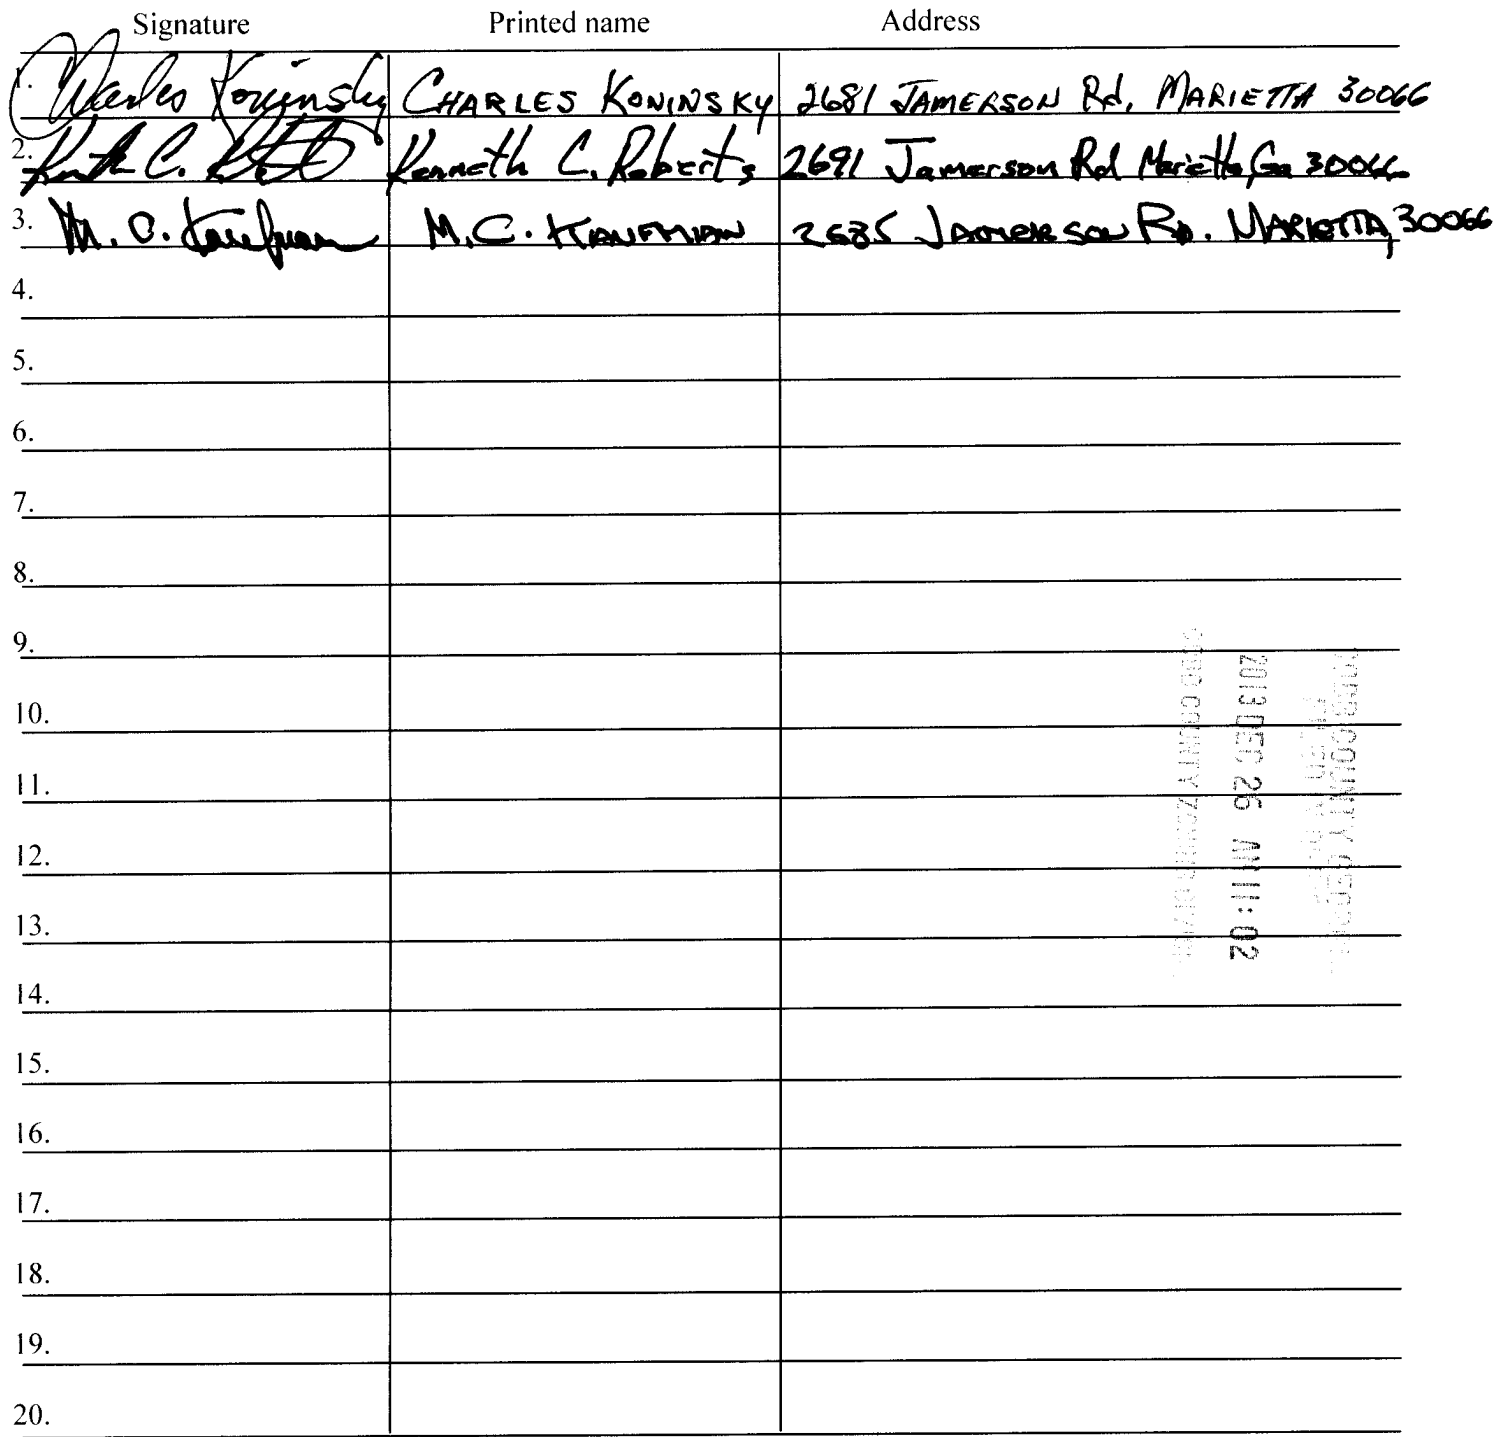 Signature Printed name Address
1. Charles Koninsky CHARLES KONINSKY 2681 JAMERSON Rd, MARIETTA 30066
2. Kenneth C. Roberts 2691 Jamerson Rd Marietta, Ga 30066
3. M. C. Kaufman M.C. KAUFMAN 2685 JAMERSON RD. MARIETTA, 30066
4.
5.
6.
7.
8.
9.
10.
11.
12.
13.
14.
15.
16.
17.
18.
19.
20.
COBB COUNTY
2013 DEC 26 AM 11:02
COBB COUNTY ZONING